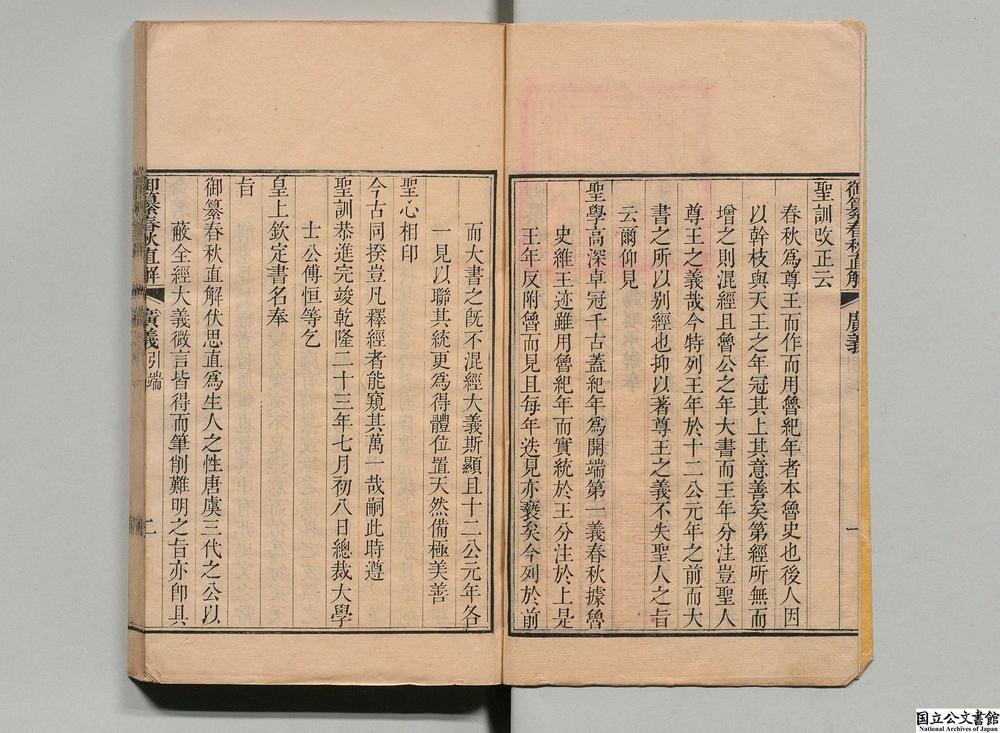 御纂春秋直解 廣義 一
聖訓改正云
春秋爲尊王而作而用魯紀年者本魯史也後人因
以幹枝與天王之年冠其上其意善矣第經所無而
增之則混經且魯公之年大書而王年分注豈聖人
尊王之義哉今特列王年於十二公元年之前而大
書之所以别經也抑以著尊王之義不失聖人之㫖
云爾仰見
聖學高深卓冠千古蓋紀年爲開端第一義春秋據魯
史維王迹雖用魯紀年而實統於王分注於上是
王年反附魯而見且每年迭見亦褻矣今列於前
而大書之旣不混經大義斯顯且十二公元年各
一見以聯其統更爲得體位置天然備極美善
聖心相印
今古同揆豈凡釋經者能窺其萬一哉嗣此時遵
聖訓恭進完竣乾隆二十三年七月初八日總裁大學
士公傅恒等乞
皇上欽定書名奉
㫖
御纂春秋直解伏思直爲生人之性唐虞三代之公以
蔽全經大義微言皆得而筆削難明之㫖亦卽具
御纂春秋直解 廣義 引端 二
国立公文書館
National Archives of Japan